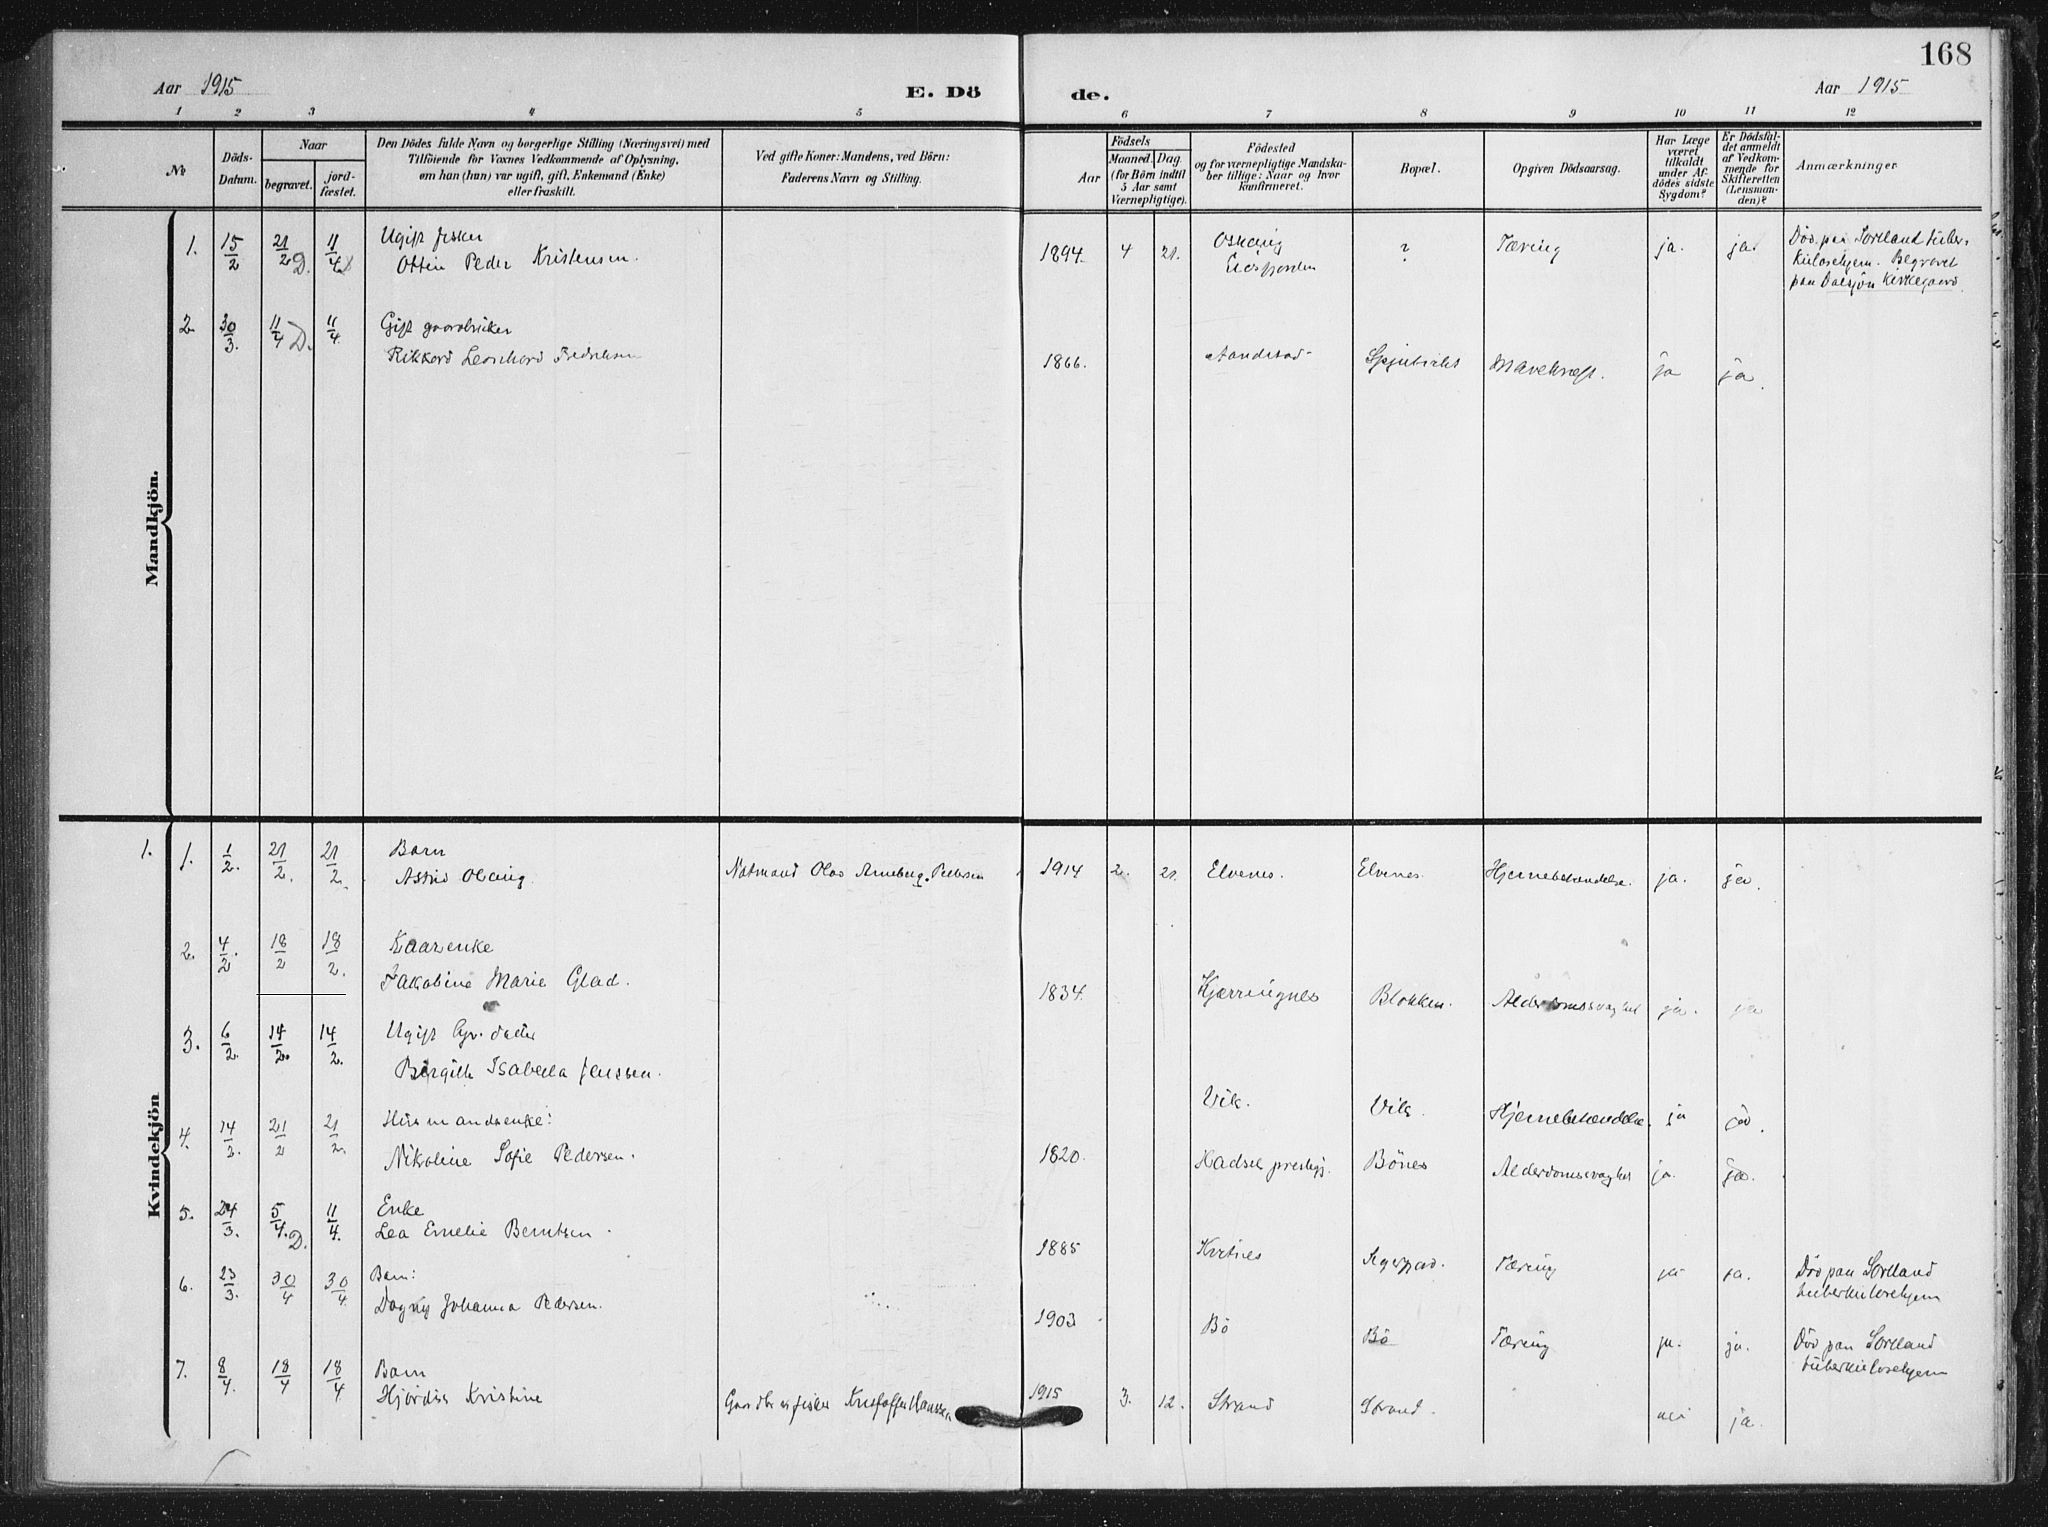 168
Aar 1915
E. Dö
de.
Aar 1915
1 2 3 4 5 6 7 8 9 10 11 12
No
Döds-
Datum.
Naar
begravet.
jord-
fæstet.
Den Dödes fulde Navn og borgerlige Stilling (Næringsvei) med
Tilföiende for Voxnes Vedkommende af Oplysning,
om han (hun) var ugift, gift, Enkemand (Enke)
eller fraskilt.
Ved gifte Koner: Mandens, ved Börn:
Faderens Navn og Stilling.
Födsels
Aar
Maaned. Dag
(for Börn indtil
5 Aar samt
Værnepligtige).
Födested
og for værnepligtige Mandska-
ber tillige: Naar og hvor
konfirmeret.
Bopæl.
Opgiven Dödsaarsag.
Har Læge
været
tilkaldt
under Af-
dödes sidste
Sygdom?
Er Dödsfal-
det anmeldt
af Vedkom-
mende for
Skifteretten
(Lensman-
den)?
Anmærkninger
Mandkjön.
1. 15/2 21/2 D. 11/4 Ugift fisker
Ottin Peder Kristensen. 1894. 4 21. Eidsfjorden ? Tæring ja. ja. Död paa Sortland tuber-
kulosehjem. Begravet
paa Kirkegaard.
2. 30/3. 11/4 D. 11/4 Gift gaardbruker
Rikkard Leonhard Fredriksen 1866. Mavekræft. ja ja.
Kvindekjön
1. 1. 1/2. 21/2. 21/2. Barn
Astrid 1914 2. 21. Elvenes. Elvenes. Hjernebetændelse. ja. ja.
2. 4/2. 18/2 18/2. Kaarenke
Jakobine Marie Glad. 1834. Kjærringnes Blokken. Alderdomssvaghet ja. ja
3. 6/2. 14/2. 14/2. Ugift Gr. datter
Birgitte Isabella Jenssen. Vik. Vik. Hjernebetændelse. ja ja.
4. 14/2. 21/2 21/2. Husmandsenke:
Nikoline Sofie Pedersen. 1820. Hadsel prestegj. Bönes Alderdomssvaghet ja. ja.
5. 24/3. 5/4. D. 11/4. Enke
Lea Emelie Berntsen. 1885 Tæring ja ja. Död paa Sortland
tuberkulosehjem
6. 23/3. 30/4 30/4. Barn:
Dagny Johanna Pedersen. 1903 Bö Bö Tæring ja. ja. Död paa Sortland
tuberkulosehjem
7. 8/4. 18/4 18/4 Barn
Hjördis Kristine Gaardbr. og fisker Kristoffer Hanssen 1915 3. 12. Strand Strand. nei ja.